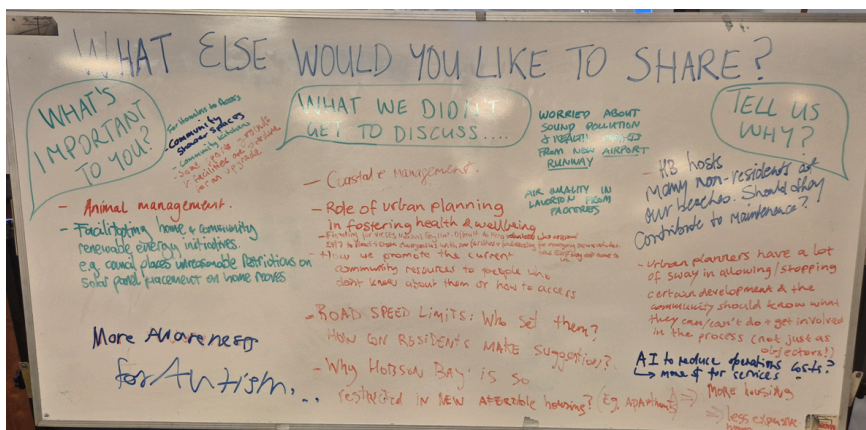 WHAT ELSE WOULD YOU LIKE TO SHARE?
WHAT'S
IMPORTANT
TO YOU?
For Homeless to Access
- community
shower spaces
community kitchens
facilities are overdue
for an upgrade
- Animal management.
- Facilitating home & community
renewable energy initiatives.
e.g. council places unreasonable restrictions on
solar panel placement on home rooves
More Awareness
for Autism...
WHAT WE DIDN'T
GET TO DISCUSS....
- Coastal Management.
- Role of urban planning
in fostering health & wellbeing
- How we promote the current
community resources to people who
dont know about them or how to access
- ROAD SPEED LIMITS: Who set them?
HOW CAN RESIDENTS MAKE SUGGESTIONS?
- Why HOBSON BAY is so
restricted IN NEW AFFORDIBLE housing? (Eg. APARTMENTS) ⇒ MORE HOUSING
⇒ less expensive
WORRIED ABOUT
SOUND POLLUTION
& HEALTH IMPACTS
FROM NEW AIRPORT
RUNWAY
AIR QUALITY IN
LAVERTON FROM
FACTORIES
TELL US
WHY?
- HB hosts
many non-residents at
our beaches. Should they
contribute to maintenance?
- Urban planners have a lot
of sway in allowing/stopping
certain development & the
community should know what
they can/can't do & get involved
in the process (not just as
objectors!)
AI to reduce operations costs?
↳ more $ for services